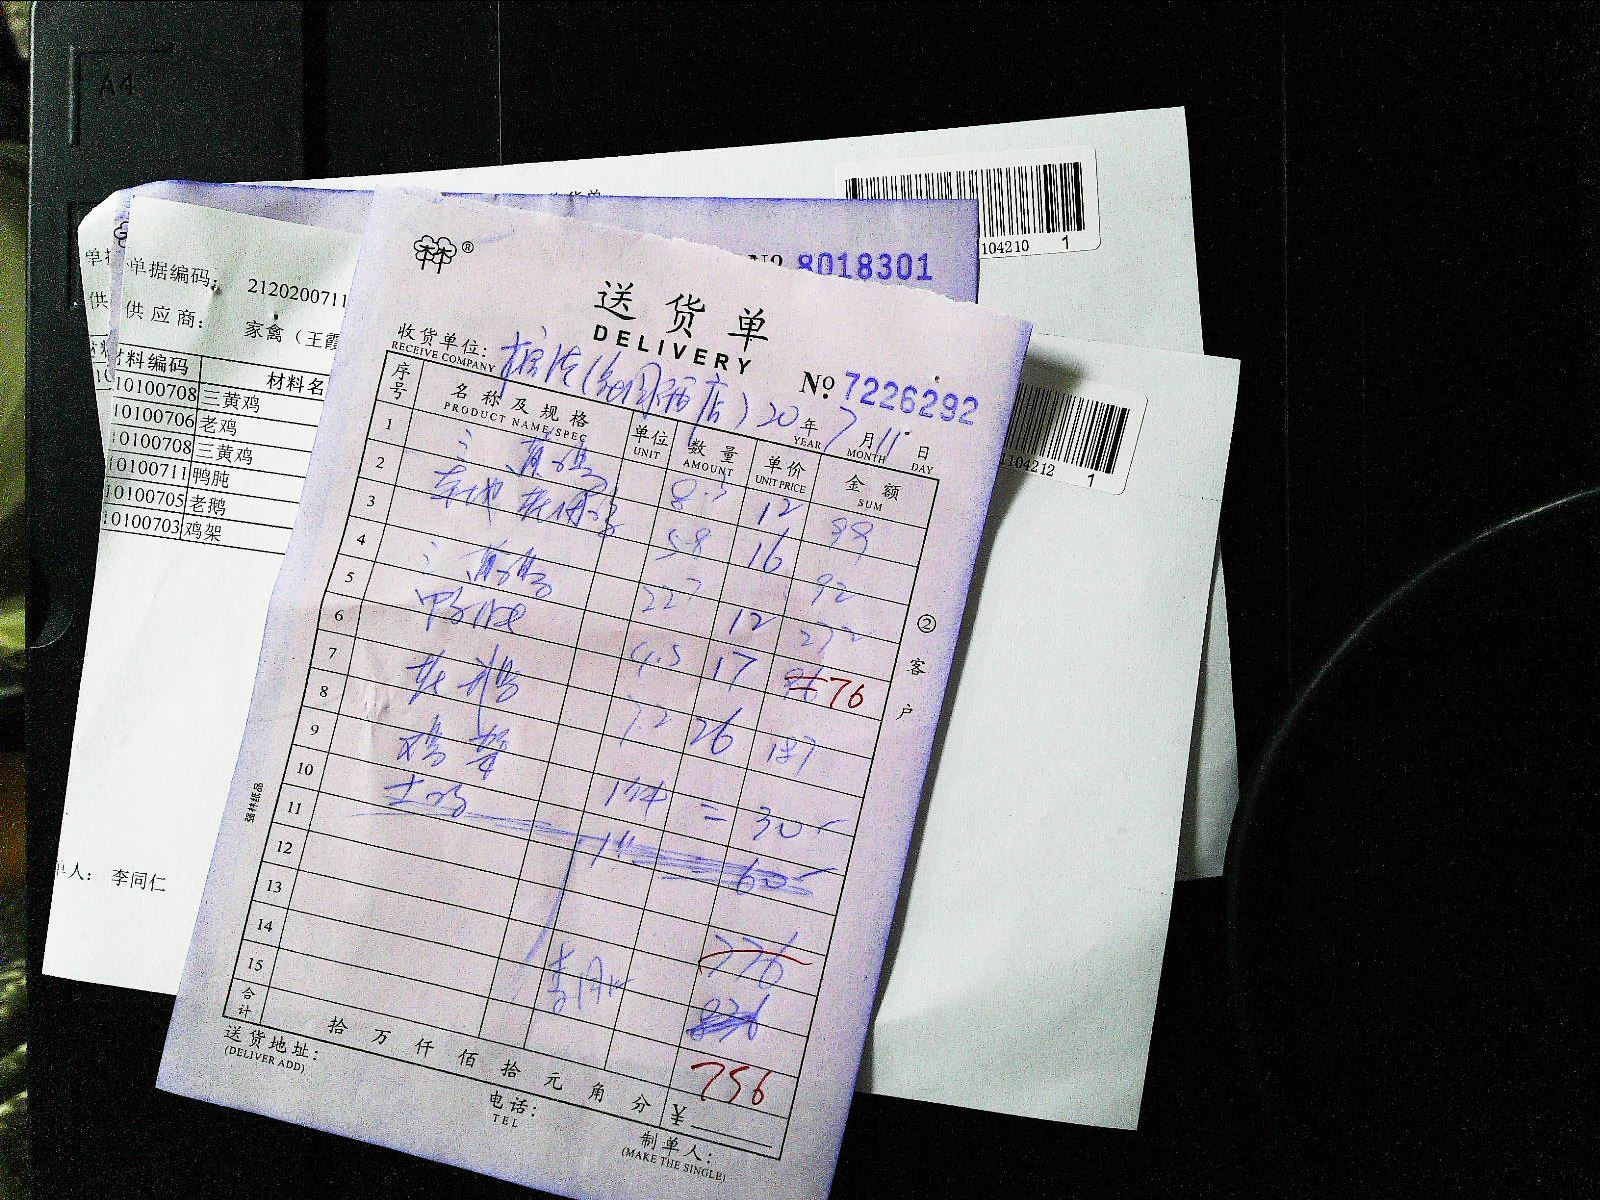 A4
104210 1
№ 8018301
单据编码: 212020071
供 应 商: 家禽（王霞
材料编码 材料名
10100708 三黄鸡
10100706 老鸡
10100708 三黄鸡
10100711 鸭肫
10100705 老鹅
10100703 鸡架
单人: 李同仁
1104212 1
®
送货单
DELIVERY
收货单位:
RECEIVE COMPANY
№ 7226292
20 年 7 月 11 日
YEAR MONTH DAY
序号 名称及规格 单位 数量 单价 金额
PRODUCT NAME/SPEC UNIT AMOUNT UNIT PRICE SUM
1 三黄鸡 8.3 12 99
2 5.8 16 92
3 三黄鸡 227 12 272
4 鸭肫 4.5 17 76
5 老鹅 7.2 26 187
6 鸡架 = 30
7 60
8
9
10
11
12
13
14
15
776
836
756
合计 拾 万 仟 佰 拾 元 角 分 ¥
送货地址:
(DELIVER ADD)
电话:
TEL
制单人:
(MAKE THE SINGLE)
② 客户
强林纸品